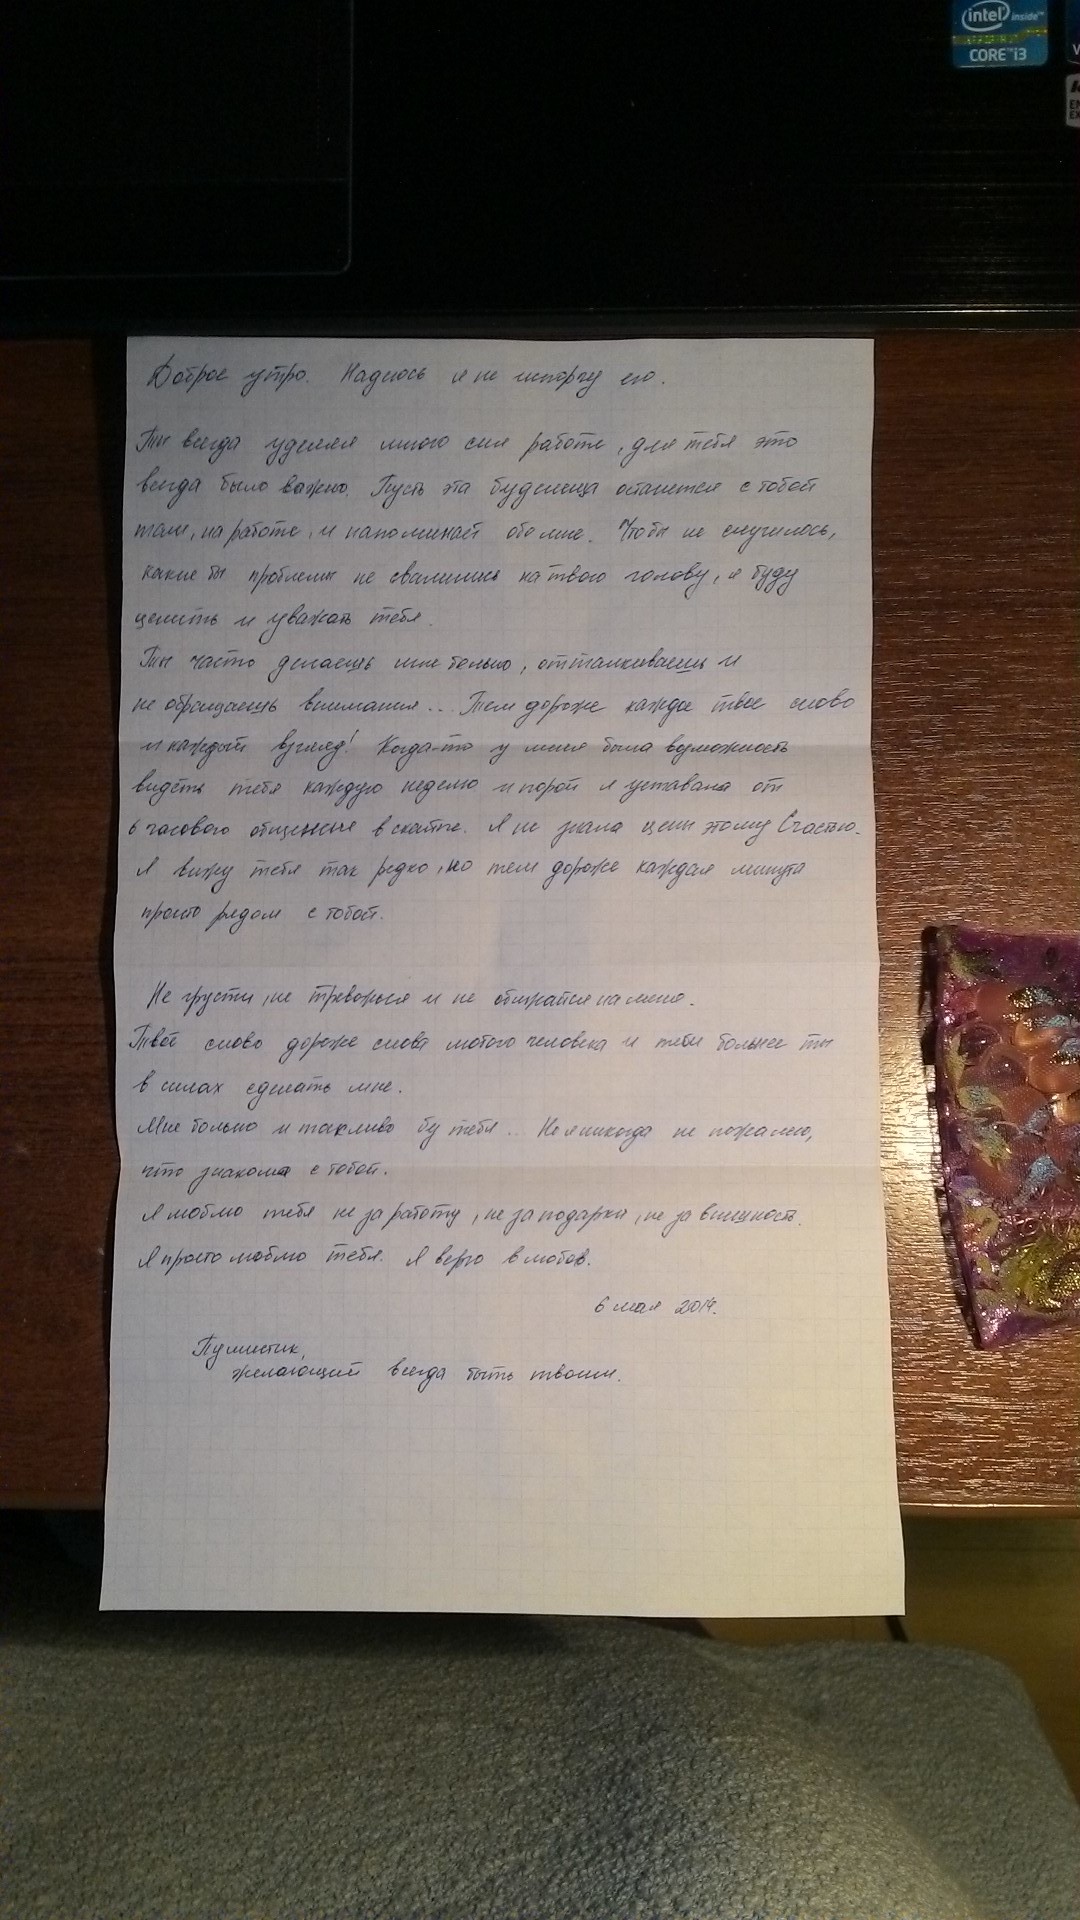 intel inside™
CORE™ i3
Доброе утро. Надеюсь я не испорчу его.
Ты всегда уделял много сил работе, для тебя это
всегда было важно. Пусть эта будет останется с тобой
там, на работе, и напоминает обо мне. Чтобы не случилось,
какие бы проблемы не свалились на твою голову, я буду
ценить и уважать тебя.
Ты часто делаешь мне больно, отталкиваешь и
не обращаешь внимания... Тем дороже каждое твое слово
и каждый взгляд! Когда-то у меня была возможность
видеть тебя каждую неделю и порой я уставала от
6 часового общения в скайпе. Я не знала цены этому Счастью.
Я вижу тебя так редко, но тем дороже каждая минута
просто рядом с тобой.
Не грусти, не тревожься и не обижайся на меня.
Твоё слово дороже слова любого человека и тем больнее ты
в силах сделать мне.
Мне больно и тоскливо без тебя... Но я никогда не пожалею,
что знакома с тобой.
Я люблю тебя не за работу, не за подарки, не за внешность.
Я просто люблю тебя. Я верю в любовь.
6 мая 2014.
Пушистик,
желающий всегда быть твоим.